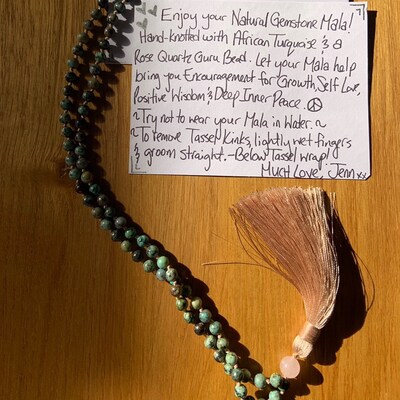 Enjoy your Natural Gemstone Mala!
Hand-knotted with African Turquoise & a
Rose Quartz Guru Bead. Let your Mala help
bring you Encouragement for Growth, Self Love,
Positive Wisdom & Deep Inner Peace. ☮
~Try not to wear your Mala in Water.~
~To remove Tassel Kinks, lightly wet fingers
& groom straight. -Below Tassel wrap!
Much Love, Jenn xx